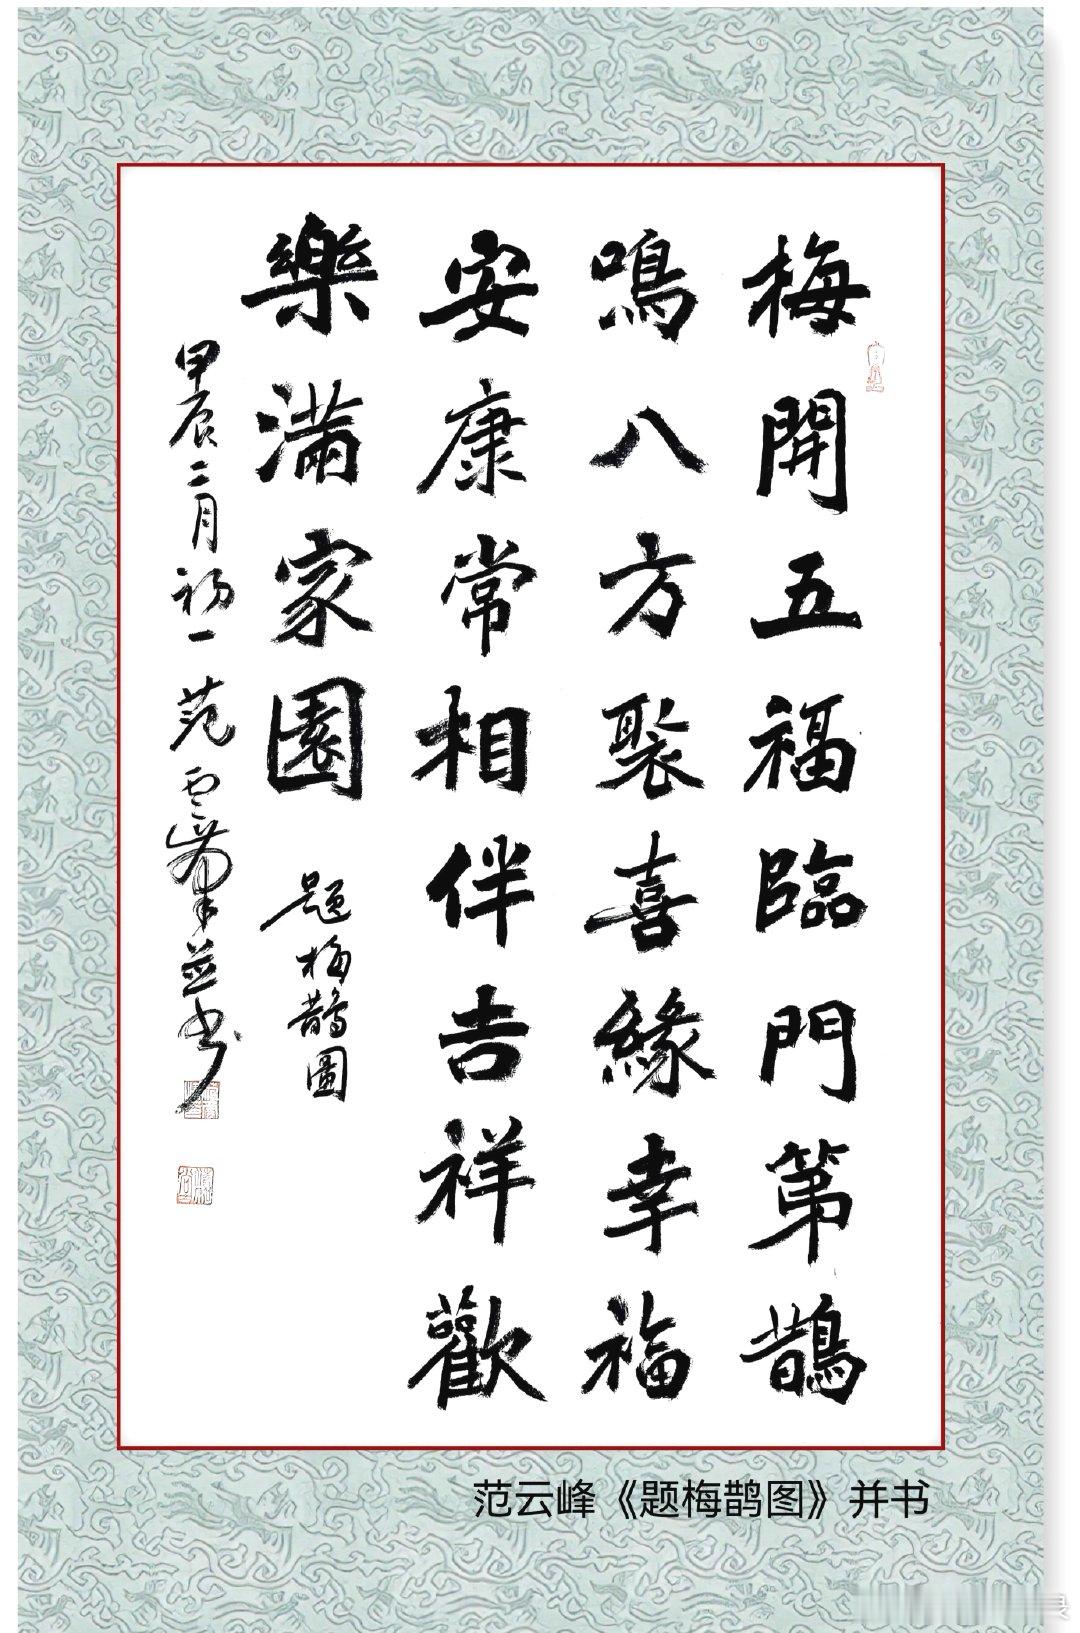 梅開五福臨門第鵲
鳴八方聚喜緣幸福
安康常相伴吉祥歡
樂滿家園
題梅鵲圖
甲辰二月初一范云峰並书
范云峰《题梅鹊图》并书